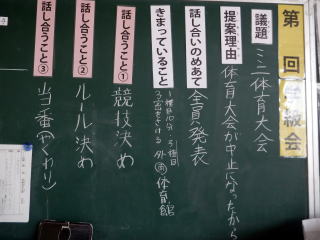 第 回学級会
議題
ミニ体育大会
提案理由
体育大会が中止になったから
話し合いのめあて
全員発表
きまっていること
1種目10分 3種目
3密をさける 外 雨 体育館
話し合うこと①
競技決め
話し合うこと②
ルール決め
話し合うこと③
当番(やくわり)